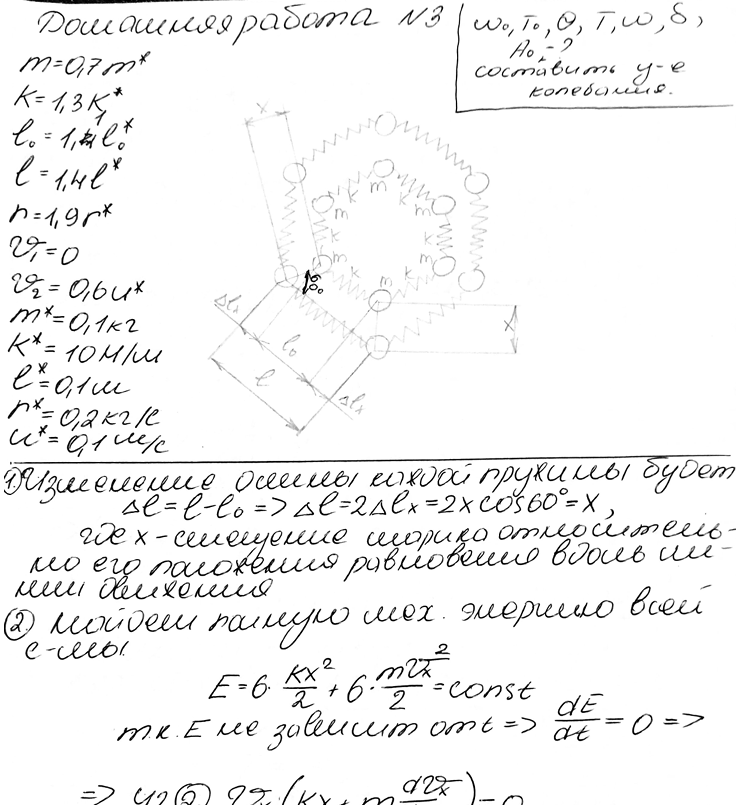 Домашняя работа №3
ω₀, T₀, θ, T, ω, δ,
A₀,-?
составить у-е
колебания.
m=0,7m*
K=1,3K*
l₀=1,1l₀*
l=1,4l*
r=1,9r*
v₁=0
v₂=0,6u*
m*=0,1кг
K*=10Н/м
l*=0,1м
r*=0,2кг/с
u*=0,1м/с
x
m
K
m
K
m
K
m
K
m
K
m
K
60°
Δlₓ
l₀
l
Δlₓ
x
1) Изменение длины каждой пружины будет
Δl=l-l₀ => Δl=2Δlₓ=2x cos60°=x,
где x-смещение шарика относитель-
но его положения равновесия вдоль ли-
нии движения
2) найдем полную мех. энергию всей
с-мы.
E=6·Kx²/2+6·mvₓ²/2=const
т.к. E не зависит от t => dE/dt=0 =>